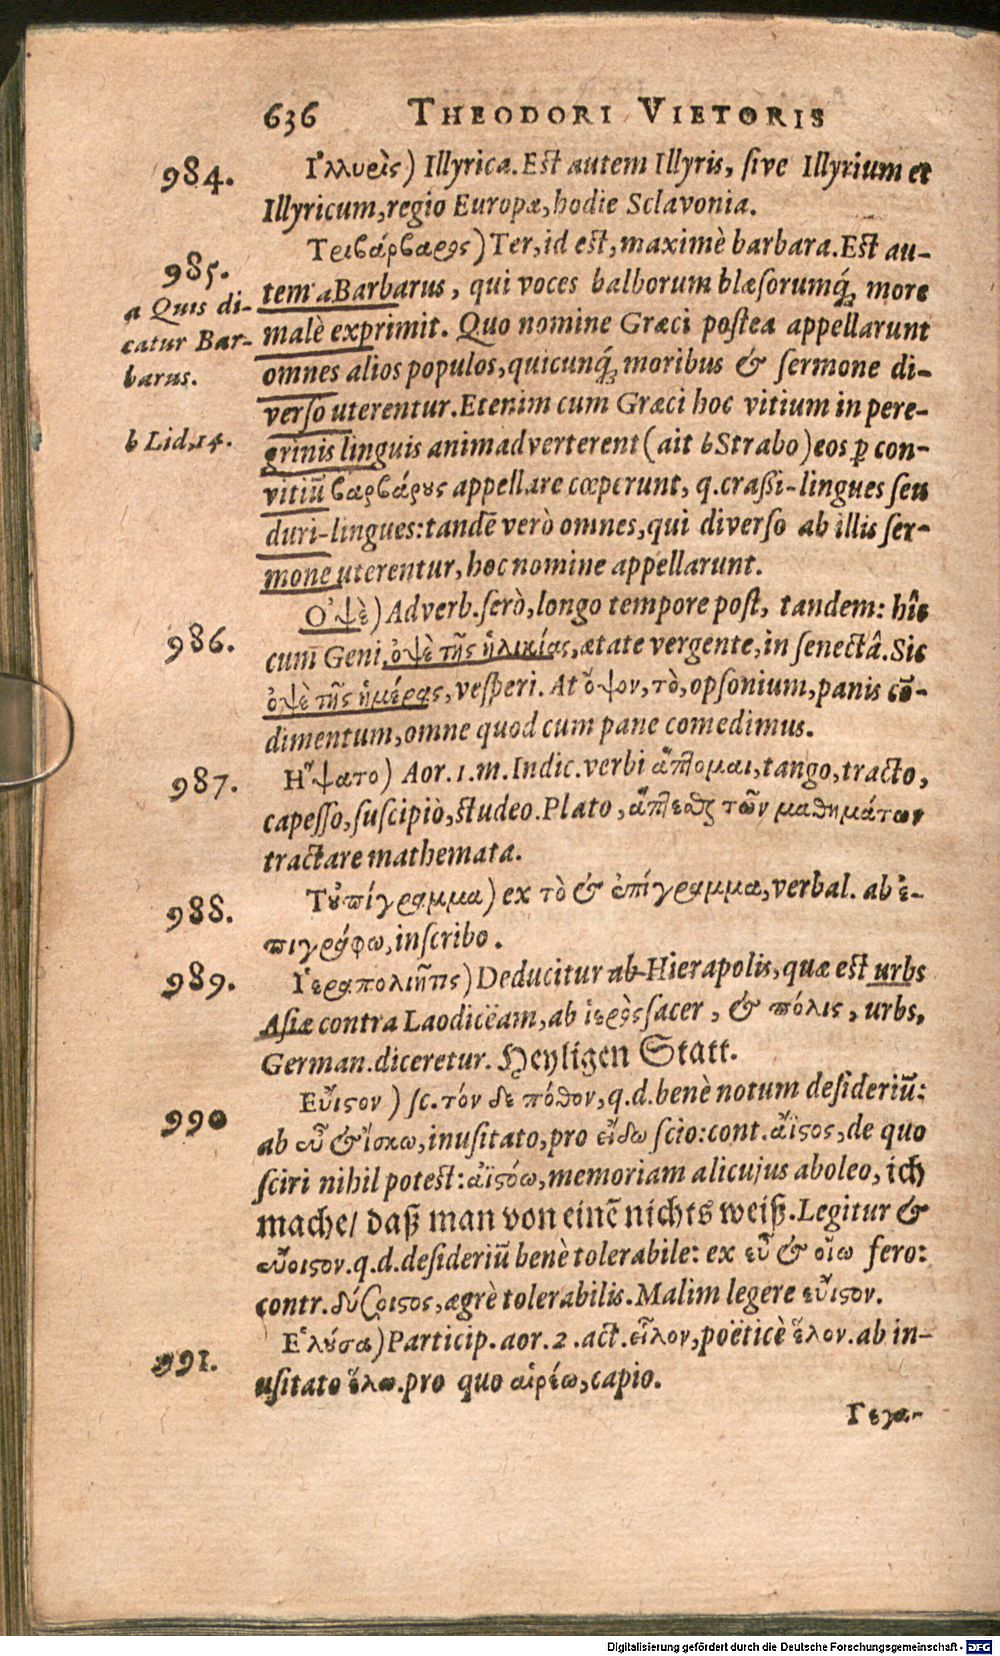 636 THEODORI VIETORIS
984. Ἰλλυρὶς) Illyrica. Est autem Illyris, sive Illyrium et
Illyricum, regio Europæ, hodie Sclavonia.
985. Τριβάρβαρος) Ter, id est, maximè barbara. Est au-
a Quis di-
catur Bar-
barus.
tem a Barbarus, qui voces balborum blæsorumq́; more
malè exprimit. Quo nomine Græci postea appellarunt
omnes alios populos, quicunq́; moribus & sermone di-
verso uterentur. Etenim cum Græci hoc vitium in pere-
b Lid. 14.
grinis linguis animadverterent (ait b Strabo) eos ꝑ con-
vitiū βαρβάρους appellare cœperunt, q. crassi-lingues seu
duri-lingues: tandē verò omnes, qui diverso ab illis ser-
mone uterentur, hoc nomine appellarunt.
986. Ὀψὲ) Adverb. serò, longo tempore post, tandem: hîc
cum̄ Geni. ὀψὲ τῆς ἡλικίας, ætate vergente, in senectâ. Sic
ὀψὲ τῆς ἡμέρας, vesperi. At ὄψον, τὸ, opsonium, panis cō-
dimentum, omne quod cum pane comedimus.
987. Ἥψατο) Aor. 1. m. Indic. verbi ἅπτομαι, tango, tracto,
capesso, suscipiò, studeo. Plato, ἅπτεσθαι τῶν μαθημάτων
tractare mathemata.
988. Τοὐπίγραμμα) ex τὸ & ἐπίγραμμα, verbal. ab ἐ-
πιγράφω, inscribo.
989. Ἱεραπολιῆτις) Deducitur ab Hierapolis, quæ est urbs
Asiæ contra Laodicëam, ab ἱερὸς sacer, & πόλις, urbs,
German. diceretur. Heyligen Statt.
990 Εὔιστον) sc. τόν δε πόθον, q. d. benè notum desideriū:
ab εὖ & ἴσκω, inusitato, pro εἴδω scio: cont. ἄϊστος, de quo
sciri nihil potest: ἀϊστόω, memoriam alicujus aboleo, ich
mache/ daß man von einē nichts weiß. Legitur &
εὔοιστον. q. d. desideriū benè tolerabile: ex εὖ & οἴω fero:
contr. δύσοιστος, ægrè tolerabilis. Malim legere εὔιστον.
991. Ἑλοῦσα) Particip. aor. 2. act. εἷλον, poëticè ἕλον. ab in-
usitato ἕλω. pro quo αἱρέω, capio.
Γεγα-
Digitalisierung gefördert durch die Deutsche Forschungsgemeinschaft - DFG